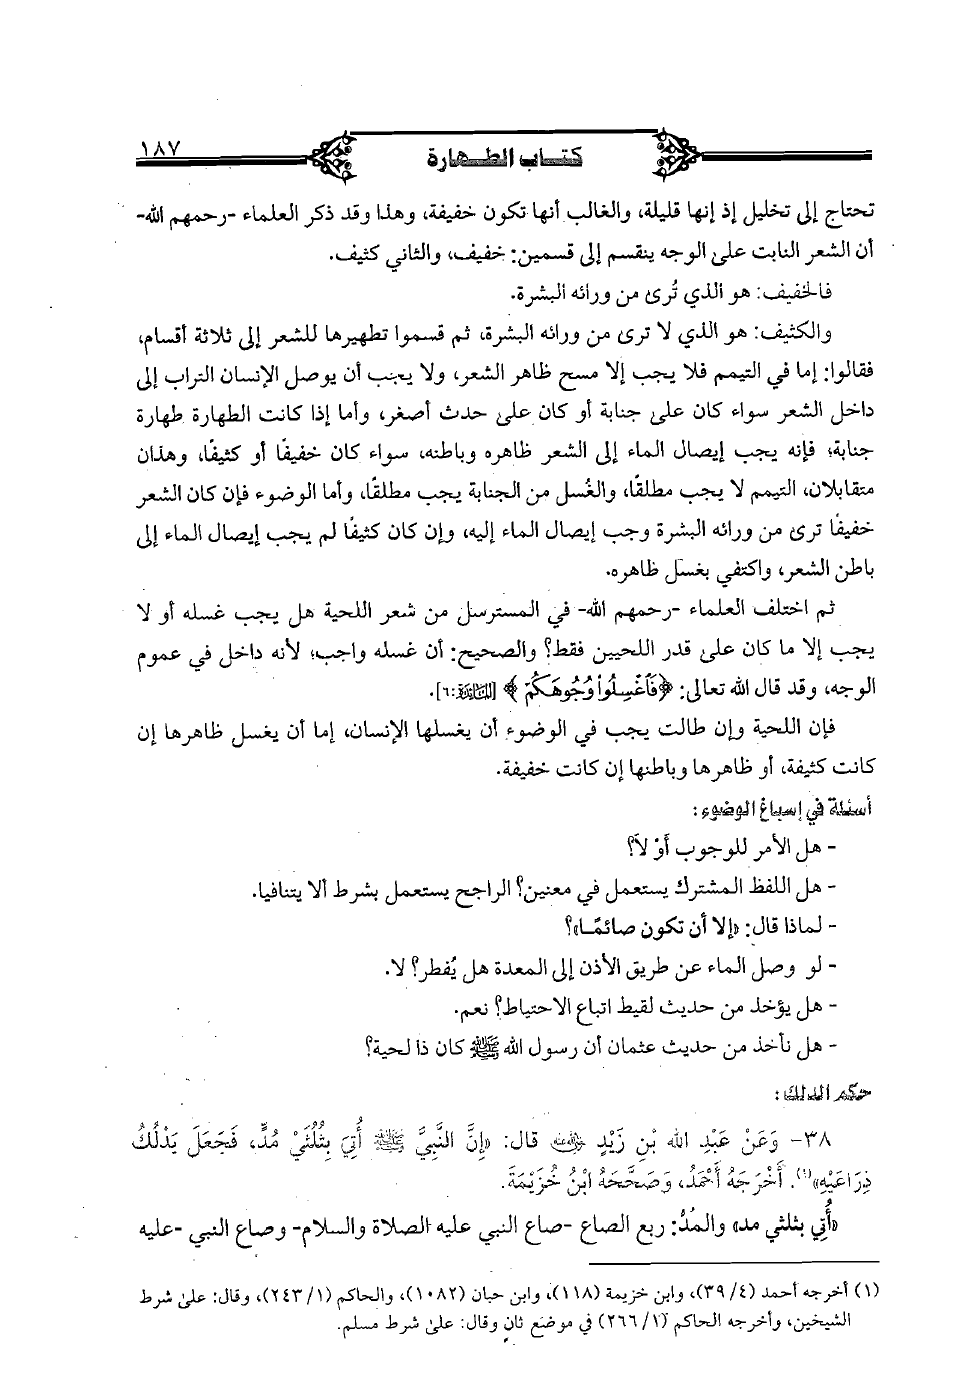 ١٨٧
كتاب الطهارة
تحتاج إلى تخليل إذ إنها قليلة، والغالب أنها تكون خفيفة، وهذا وقد ذكر العلماء -رحمهم الله-
أن الشعر النابت على الوجه ينقسم إلى قسمين: خفيف، والثاني كثيف.
فالخفيف: هو الذي تُرى من ورائه البشرة.
والكثيف: هو الذي لا ترى من ورائه البشرة، ثم قسموا تطهيرها للشعر إلى ثلاثة أقسام،
فقالوا: إما في التيمم فلا يجب إلا مسح ظاهر الشعر، ولا يجب أن يوصل الإنسان التراب إلى
داخل الشعر سواء كان على جنابة أو كان على حدث أصغر، وأما إذا كانت الطهارة طهارة
جنابة؛ فإنه يجب إيصال الماء إلى الشعر ظاهره وباطنه، سواء كان خفيفًا أو كثيفًا، وهذان
متقابلان، التيمم لا يجب مطلقًا، والغُسل من الجنابة يجب مطلقًا، وأما الوضوء فإن كان الشعر
خفيفًا ترى من ورائه البشرة وجب إيصال الماء إليه، وإن كان كثيفًا لم يجب إيصال الماء إلى
باطن الشعر، واكتفي بغسل ظاهره.
ثم اختلف العلماء -رحمهم الله- في المسترسل من شعر اللحية هل يجب غسله أو لا
يجب إلا ما كان على قدر اللحيين فقط؟ والصحيح: أن غسله واجب؛ لأنه داخل في عموم
الوجه، وقد قال الله تعالى: ﴿فَٱغْسِلُوا۟ وُجُوهَكُمْ﴾ [المائدة:٦].
فإن اللحية وإن طالت يجب في الوضوء أن يغسلها الإنسان، إما أن يغسل ظاهرها إن
كانت كثيفة، أو ظاهرها وباطنها إن كانت خفيفة.
أسئلة في إسباغ الوضوء:
- هل الأمر للوجوب أَوْ لاَ؟
- هل اللفظ المشترك يستعمل في معنين؟ الراجح يستعمل بشرط ألا يتنافيا.
- لماذا قال: «إلا أن تكون صائمًا»؟
- لو وصل الماء عن طريق الأذن إلى المعدة هل يُفطر؟ لا.
- هل يؤخذ من حديث لقيط اتباع الاحتياط؟ نعم.
- هل نأخذ من حديث عثمان أن رسول الله ﷺ كان ذا لحية؟
حكم الدلك:
٣٨- وَعَنْ عَبْدِ الله بْنِ زَيْدٍ رضي الله عنه قال: «إِنَّ النَّبِيَّ ﷺ أُتِيَ بِثُلُثَيْ مُدٍّ، فَجَعَلَ يَدْلُكُ
ذِرَاعَيْهِ»(١). أَخْرَجَهُ أَحْمَدُ، وَصَحَّحَهُ ابْنُ خُزَيْمَةَ.
«أُتي بثلثي مد» والمُدُّ: ربع الصاع -صاع النبي عليه الصلاة والسلام- وصاع النبي -عليه
(١) أخرجه أحمد (٣٩/٤)، وابن خزيمة (١١٨)، وابن حبان (١٠٨٢)، والحاكم (٢٤٣/١)، وقال: على شرط
الشيخين، وأخرجه الحاكم (٢٦٦/١) في موضع ثان وقال: على شرط مسلم.